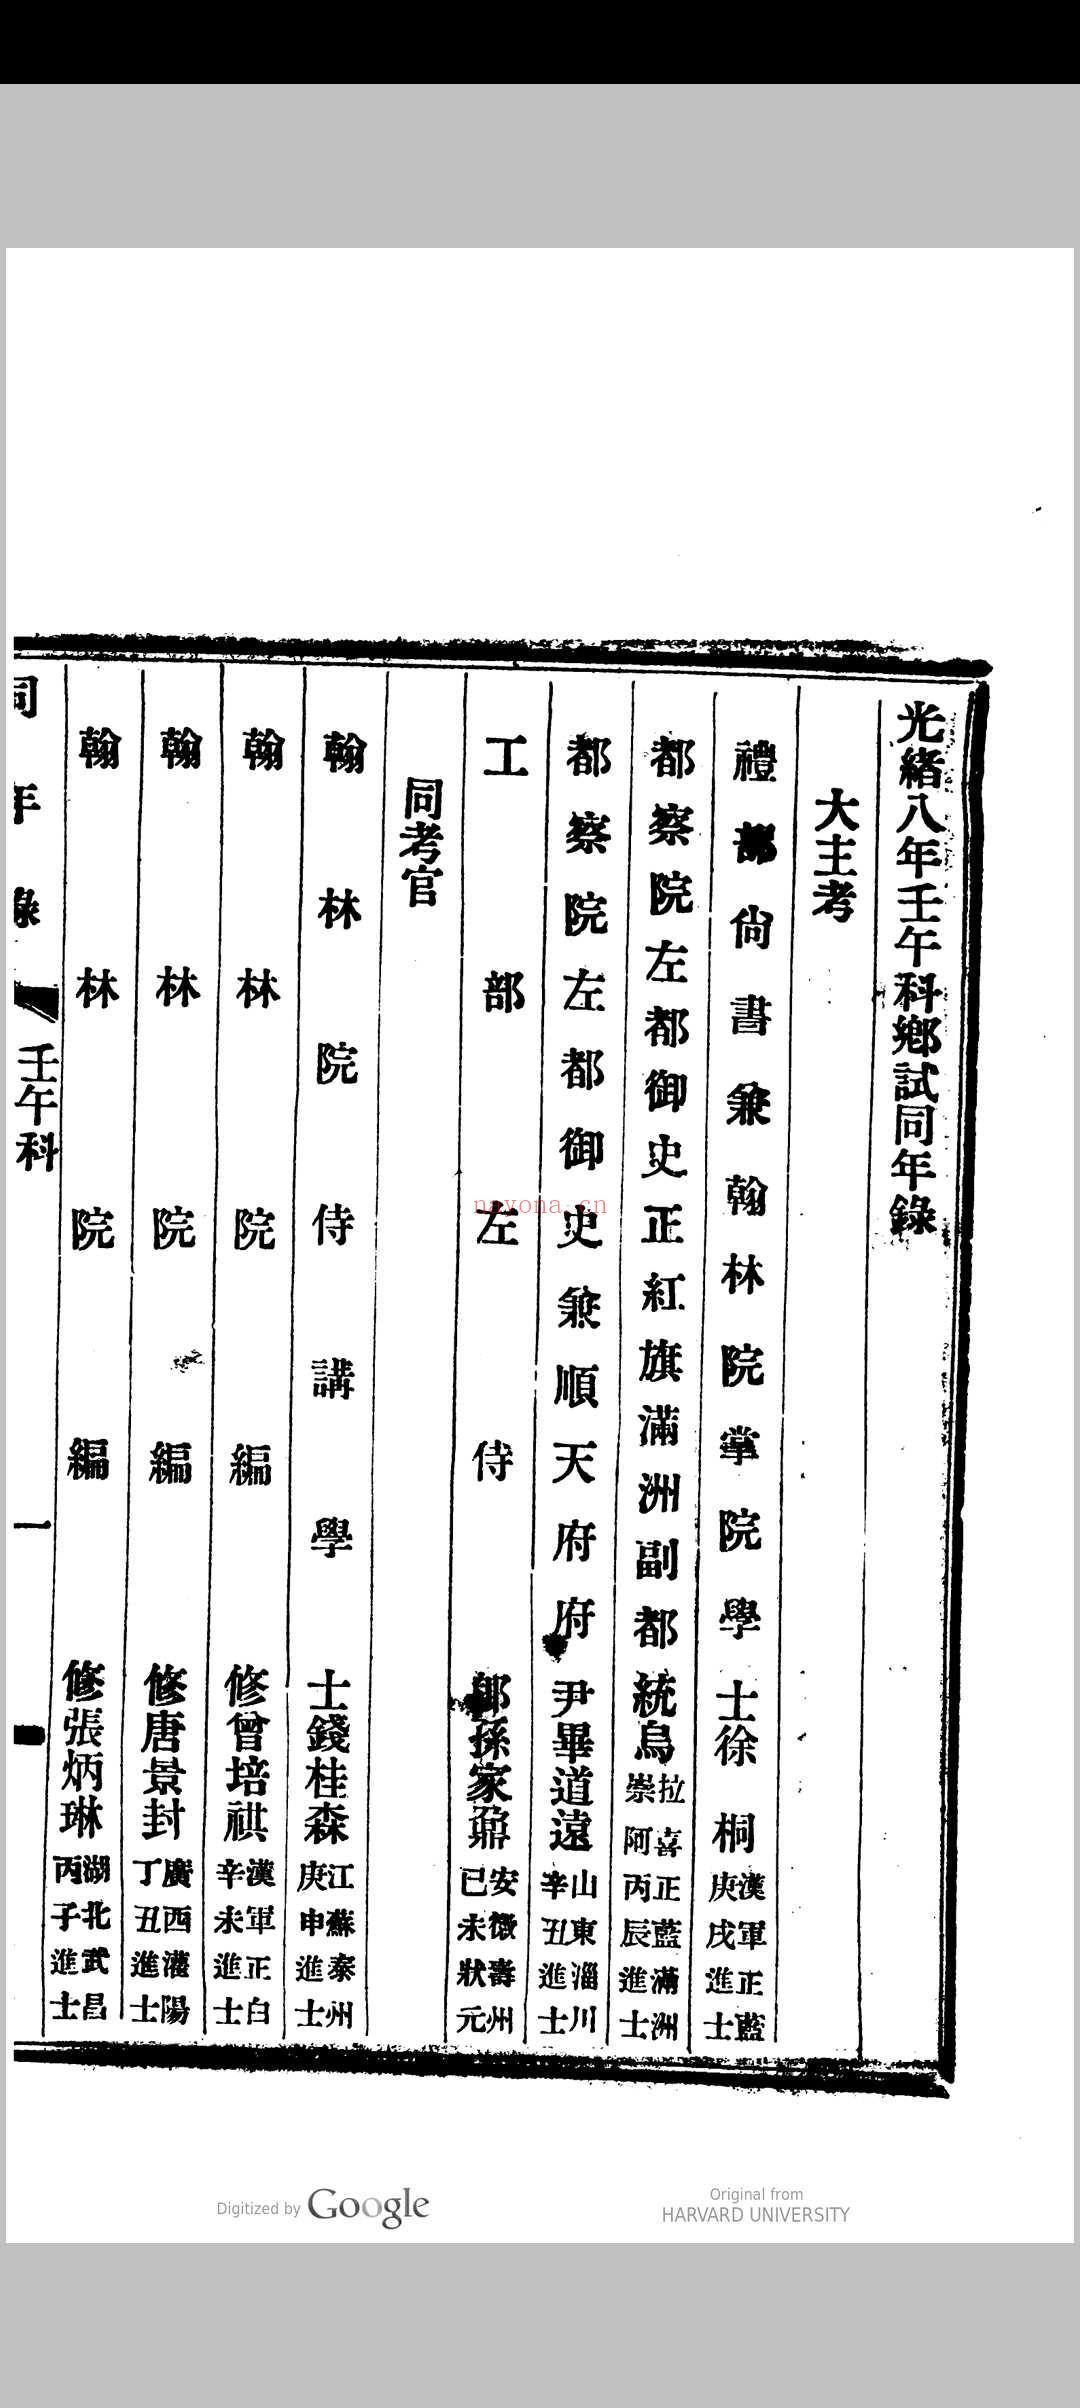 光緖八年壬午科鄉試同年錄
大主考
禮部尙書兼翰林院掌院學士徐桐漢軍正藍庚戌進士
都察院左都御史正紅旗滿洲副都統烏拉喜崇阿正藍滿洲丙辰進士
都察院左都御史兼順天府府尹畢道遠山東淄川辛丑進士
工部左侍郞孫家鼐安徽壽州已未狀元
同考官
翰林院侍講學士錢桂森江蘇泰州庚申進士
翰林院編修曾培祺漢軍正白辛未進士
翰林院編修唐景封廣西灌陽丁丑進士
翰林院編修張炳琳湖北武昌丙子進士
同年錄 壬午科 一
nayona.cn
Digitized by Google
Original from
HARVARD UNIVERSITY